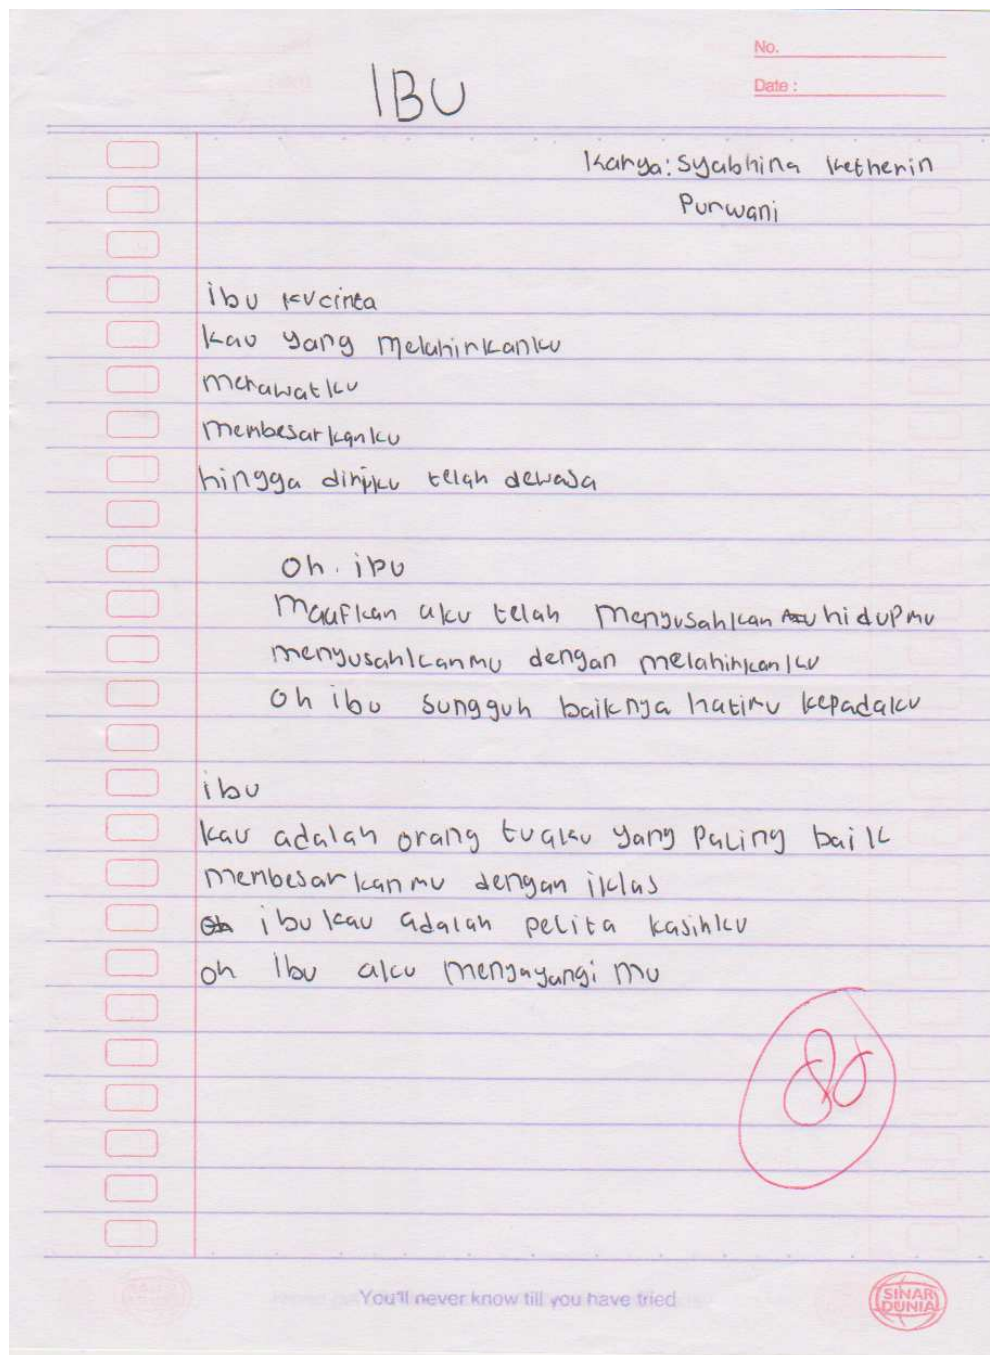 No.
Date :
IBU
Karya: Syabhina Ketherin
Purwani
ibu kucinta
kau yang melahirkanku
merawatku
membesarkanku
hingga diriku telah dewasa
oh. ibu
maafkan aku telah menyusahkan hidupmu
menyusahkanmu dengan melahirkanku
oh ibu sungguh baiknya hatimu kepadaku
ibu
kau adalah orang tuaku yang paling baik
membesarkanmu dengan iklas
ibu kau adalah pelita kasihku
oh Ibu aku menyayangi mu
80
You'll never know till you have tried
SINAR
DUNIA